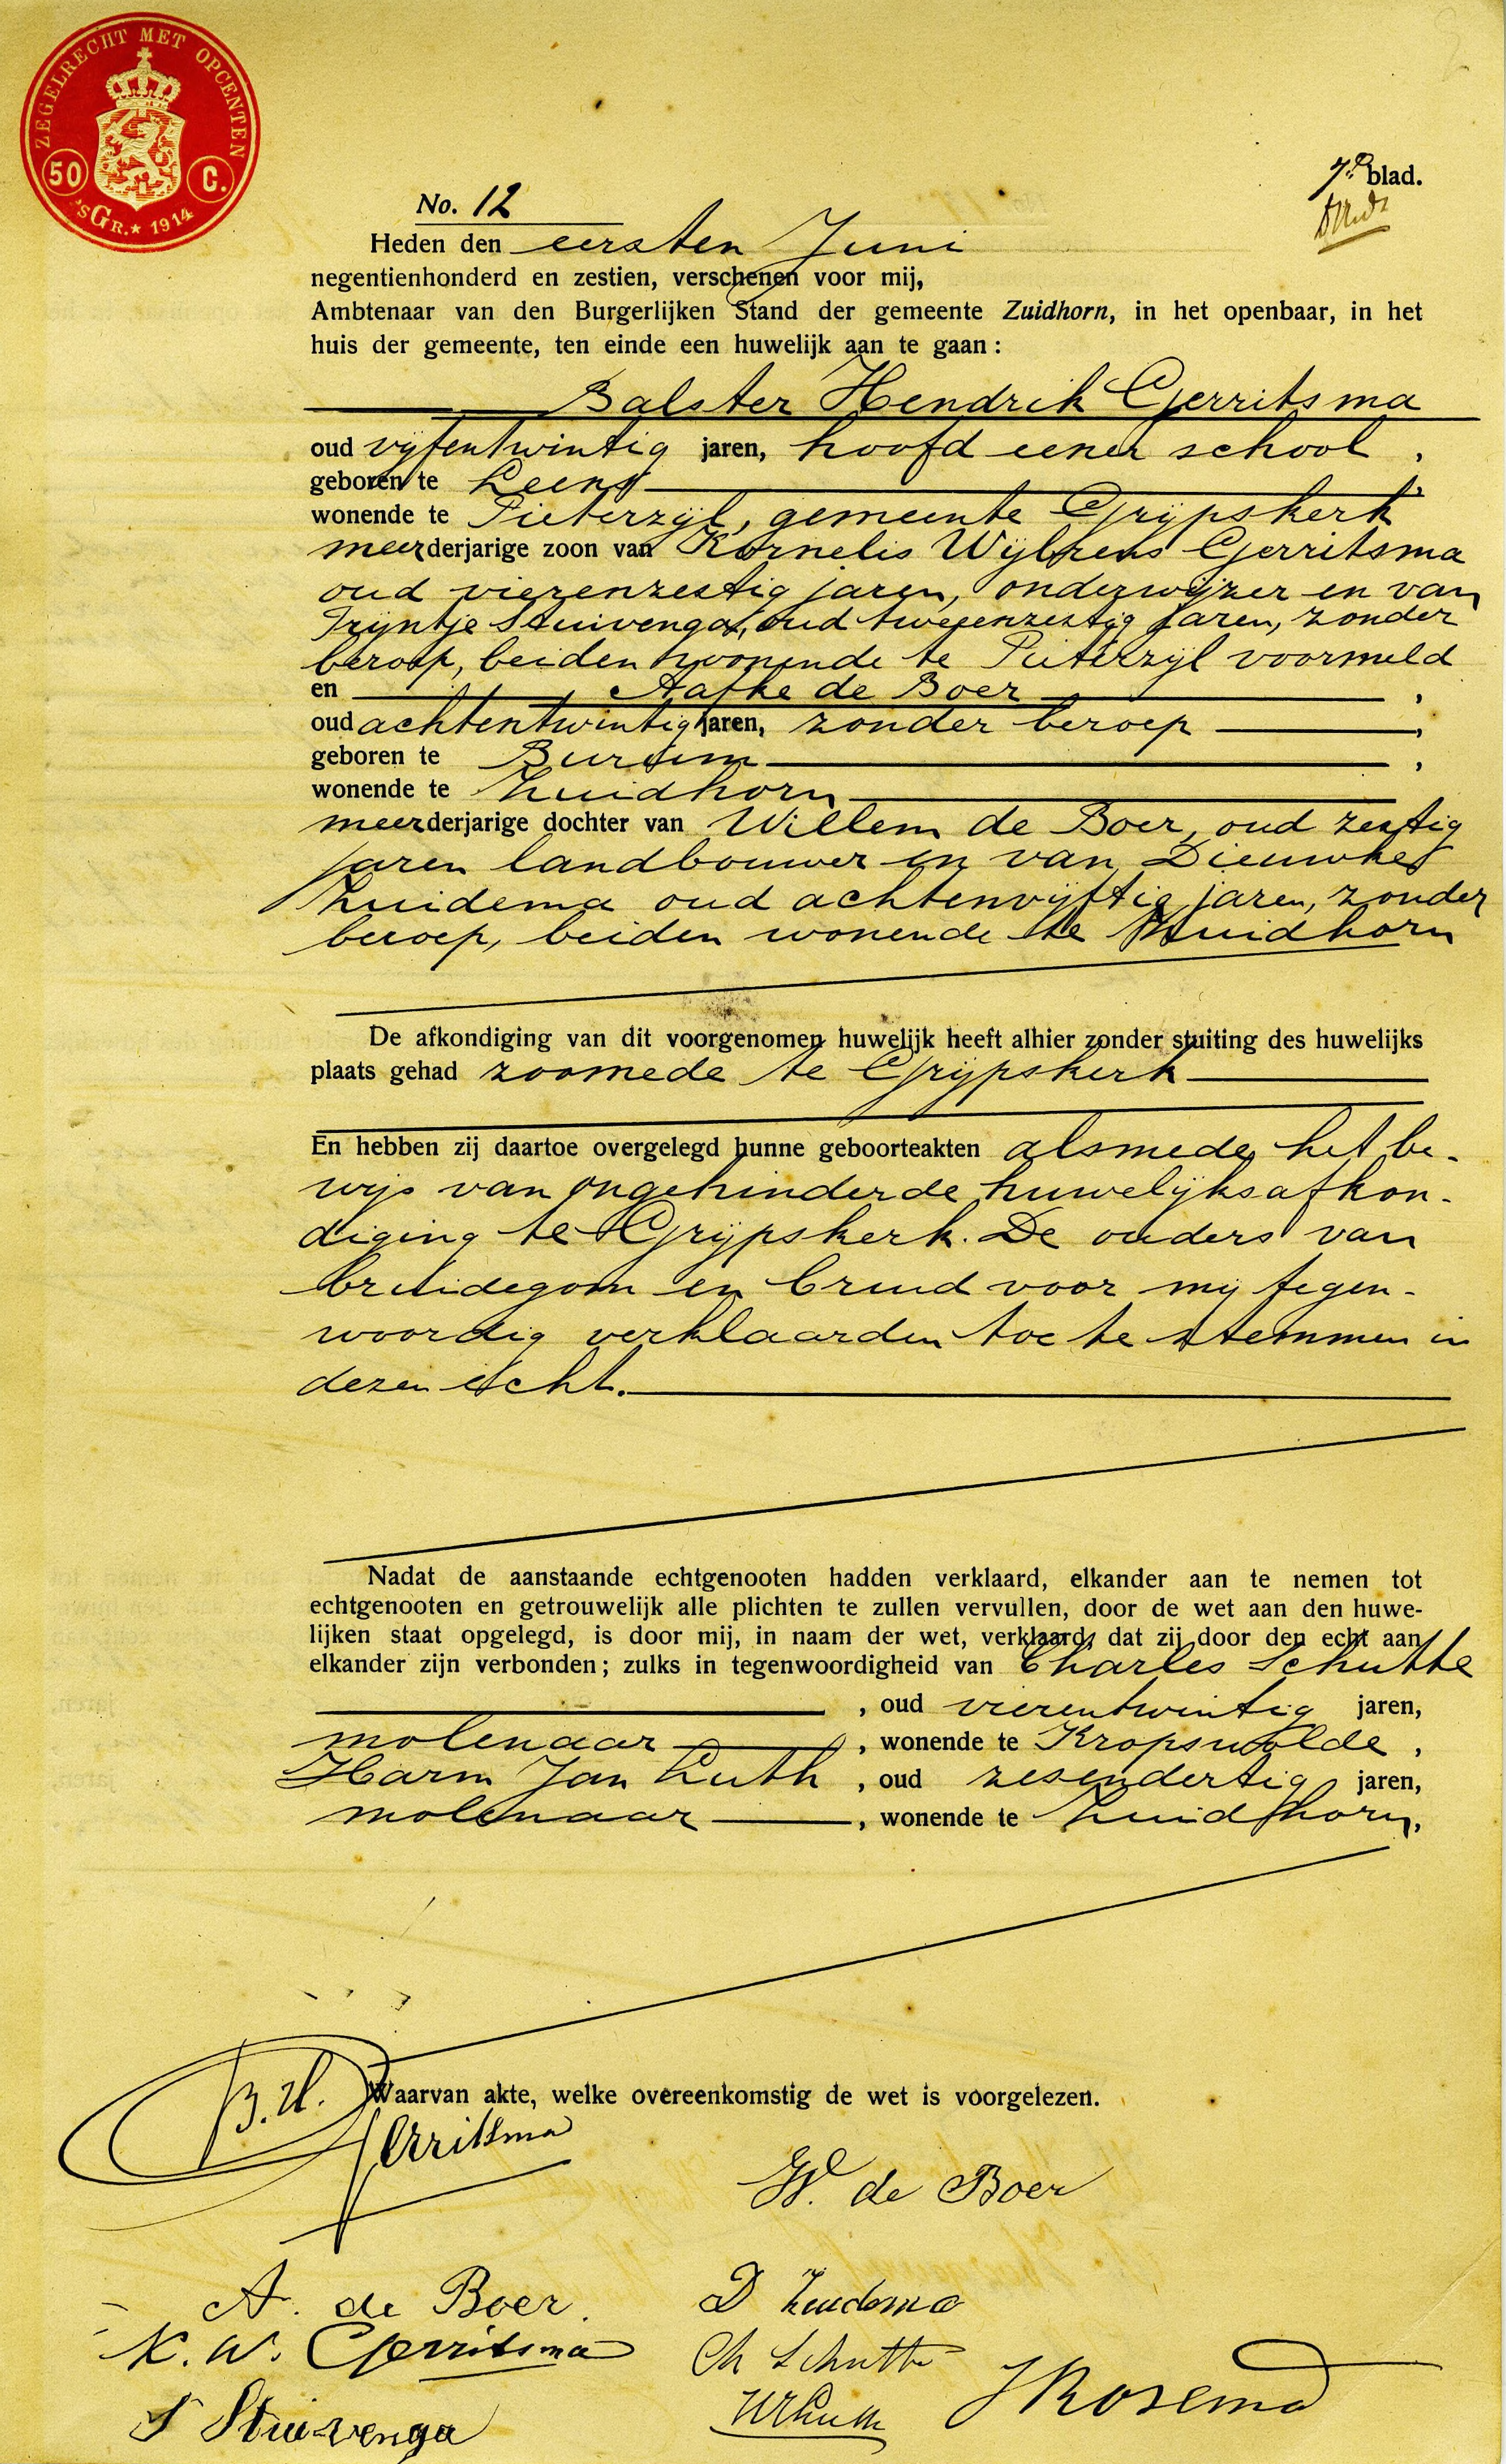 ZEGELRECHT MET OPCENTEN
50 C.
'sGR. * 1914
blad.
No. 12
Heden den eersten Juni
negentienhonderd en zestien, verschenen voor mij,
Ambtenaar van den Burgerlijken Stand der gemeente Zuidhorn, in het openbaar, in het
huis der gemeente, ten einde een huwelijk aan te gaan:
Balster Hendrik Gerritsma
oud vijfentwintig jaren, hoofd eener school,
geboren te Leens,
wonende te Pieterzijl, gemeente Grijpskerk
meerderjarige zoon van Kornelis Wijbrens Gerritsma
oud vierenzestig jaren, onderwijzer en van
Trijntje Stuivenga, oud tweeenzestig jaren, zonder
beroep, beiden wonende te Pieterzijl voormeld
en Aafke de Boer,
oud achtentwintig jaren, zonder beroep,
geboren te Burum,
wonende te Zuidhorn
meerderjarige dochter van Willem de Boer, oud zestig
jaren landbouwer en van Dieuwke
Zuidema oud achtenvijftig jaren, zonder
beroep, beiden wonende te Zuidhorn
De afkondiging van dit voorgenomen huwelijk heeft alhier zonder stuiting des huwelijks
plaats gehad zoomede te Grijpskerk
En hebben zij daartoe overgelegd hunne geboorteakten alsmede het be-
wijs van ongehinderde huwelijksafkon-
diging te Grijpskerk. De ouders van
bruidegom en bruid voor mij tegen-
woordig verklaarden toe te stemmen in
dezen echt.
Nadat de aanstaande echtgenooten hadden verklaard, elkander aan te nemen tot
echtgenooten en getrouwelijk alle plichten te zullen vervullen, door de wet aan den huwe-
lijken staat opgelegd, is door mij, in naam der wet, verklaard, dat zij door den echt aan
elkander zijn verbonden; zulks in tegenwoordigheid van Charles Schutte
, oud vierentwintig jaren,
molenaar, wonende te Kropswolde,
Harm Jan Luth, oud zesendertig jaren,
molenaar, wonende te Zuidhorn,
Waarvan akte, welke overeenkomstig de wet is voorgelezen.
B. H. Gerritsma
W. de Boer
A. de Boer.
D Zuidema
K. W. Gerritsma
Ch Schutte
Stuivenga
HJLuth
JRosema